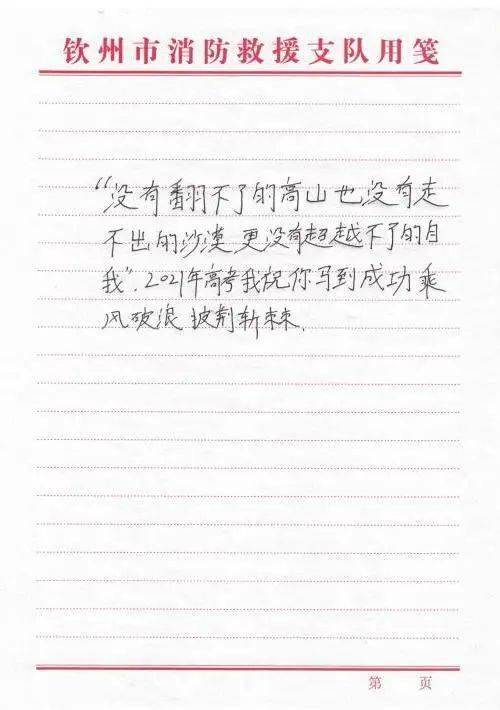 钦州市消防救援支队用笺
“没有翻不了的高山也没有走
不出的沙漠,更没有超越不了的自
我”.2021年高考我祝你马到成功乘
风破浪 披荆斩棘.
第 页